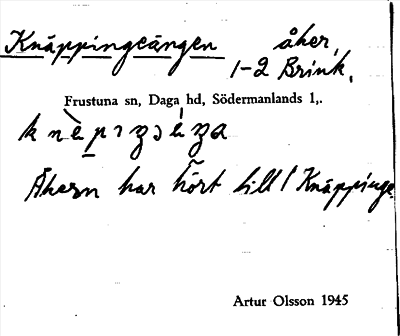 Knäppingeängen åker,
1-2 Brink.
Frustuna sn, Daga hd, Södermanlands l,.
Åkern har hört till Knäppinge.
Artur Olsson 1945